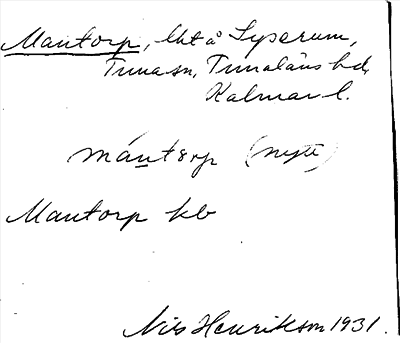 Mantorp, lht å Syserum,
Tuna sn, Tunaläns hd,
Kalmar l.
mántərp (nytt)
Mantorp kb
Nils Henrikson 1931.